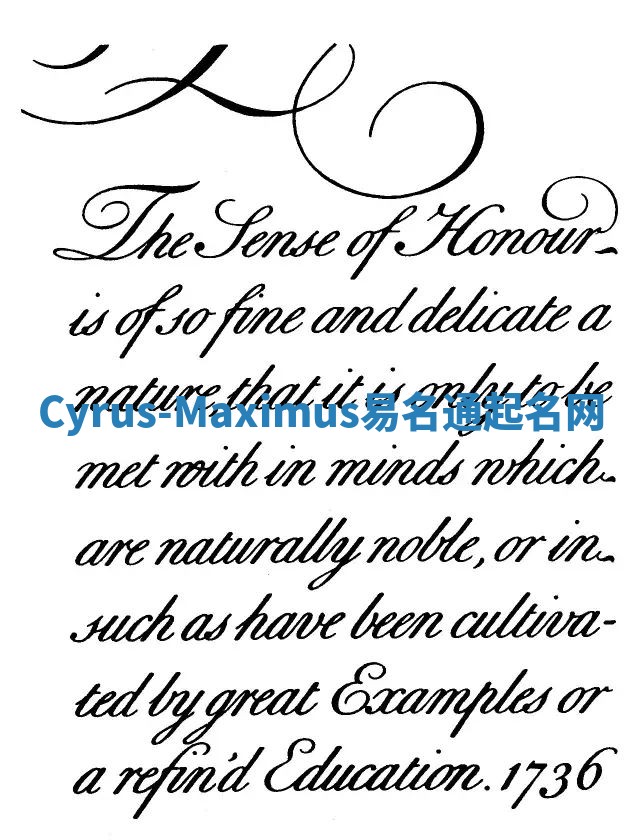 The Sense of Honour
is of so fine and delicate a
nature, that it is only to be
Cyrus-Maximus易名通起名网
met with in minds which
are naturally noble, or in
such as have been cultiva-
ted by great Examples or
a refin'd Education. 1736